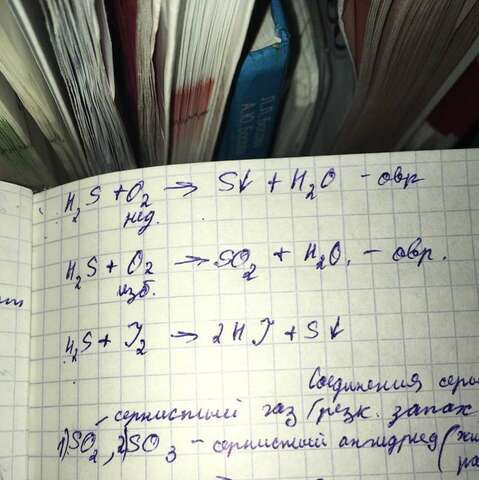 А.Ю. 
H₂S + O₂ → S↓ + H₂O – овр
нед.
H₂S + O₂ → SO₂ + H₂O. – овр.
изб.
H₂S + J₂ → 2HJ + S↓
Соединения серы
сернистый газ (резк. запах
1) SO₂, 2) SO₃ – сернистый ангидрид (